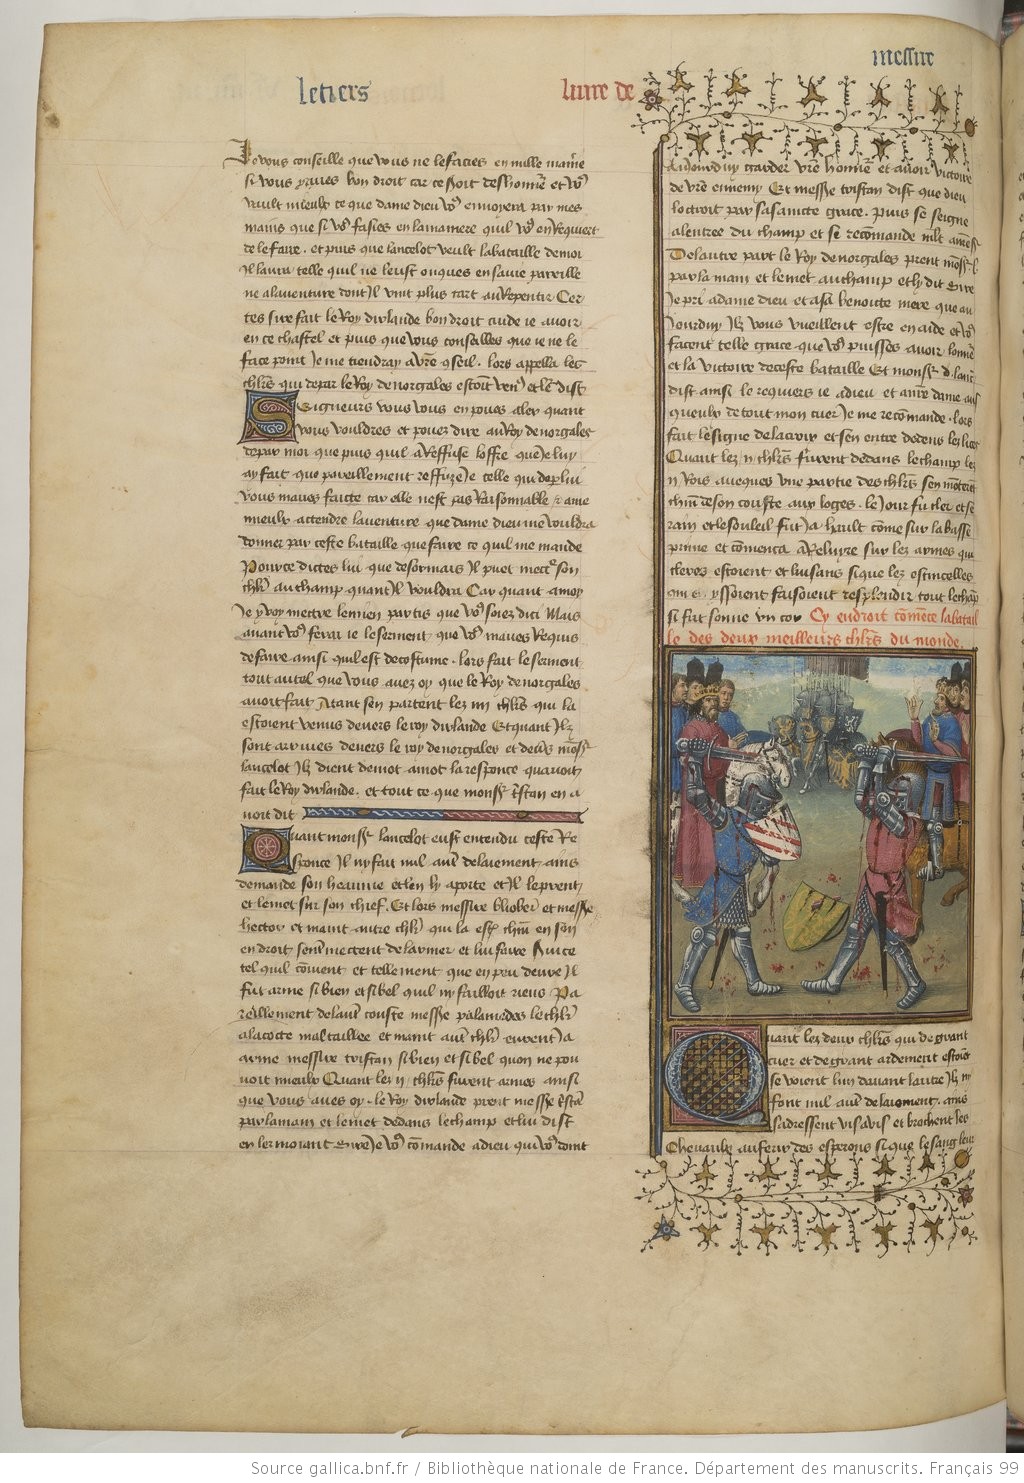 letiers
liure de
messire
Je vous conseille que vous ne le facies en nulle manie
si vous y aues bon droit car ce seroit deshonneur et vo9
vault mieulx ce que dame dieu vo9 enuoyera par mes
mains que si vo9 fasies en la maniere quil vo9 en Requiert
de le faire. et puis que lancelot veult la bataille de moi
Il laura telle quil ne leust onques en sa vie pareille
ne a lauenture dont Il vint plus tart au Repentir Cer
tes sire fait le Roy dirlande bon droit cuide ie auoir
en ce chastel et puis que vous conseilles que ie ne le
face point Je me tiendray a vre 9seil. lors appella les
chlrs qui de par le Roy de norgales estoiet venus et le dist
Seigneurs vous vous en poues aler quant
vous vouldres et pouez dire au Roy de norgales
de par moi que puis quil a Reffuse loffre que Je luy
ay fait que pareillement reffuze Je telle qui de par lui
vous maues faicte car elle nest pas Raisonnable
mieulx attendre lauenture que dame dieu me vouldra
donner par ceste bataille que faire ce quil me mande
Pour ce dictes lui que desormais Il puet mectre son
chlr au champ quant Il vouldra Car quant a moy
Je y voy mettre le mien partis que vo9 soiez dici Mais
auant vo9 feray ie le serment que vo9 maues Requis
de faire ainsi quil est de costume. lors fait le serment
tout autel que vous auez oy que le Roy de norgales
auoit fait Atant sen partent lez iiii chlrs qui la
estoient venus deuers le roy dirlande Et quant Ilz
sont arriues deuers le roy de norgales et deuers mosr
lancelot Ilz dient de mot a mot la responce quauoit
fait le Roy dirlande. et tout ce que monsr tristan en a
uoit dit
Quant monsr lancelot eust entendu ceste Re
sponce Il ny fait nul autre delaiement ains
demande son heaume et len ly aporte et Il le prent
et le met sur son chief. Et lors messire blioberis et messire
hector et maint autre chlr qui la estoient chun en son
endroit sentremettent de larmer et lui faire seruice
tel quil conuient et tellement que en peu deure Il
fut arme si bien et si bel quil ny failloit riens Pa
reillement de lautre couste messire palamides le chlr
a la cotte maltaillee et maint autre chlr eurent Ja
arme messire tristan si bien et si bel quon ne pou
uoit mieulx Quant lez ii chlrs furent armes ainsi
que vous aues oy. le Roy dirlande prent messire tristan
par la main et le met dedans le champ et lui dist
en lermoiant sire Je vo9 commande a dieu qui vo9 doint
Auiourduy garder vre honneur et auoir victoire
de vre ennemy Et messire tristan dist que dieu
loctroit par sa saincte grace. Puis se seigne
a lentree du champ et se recommande
De lautre part le Roy de norgales prent messr l
par la main et le met au champ et ly dit Sire
Je pri a dame dieu et a sa benoicte mere que au
Jourduy Ilz vous vueillent estre en aide et vo9
facent telle grace que vo9 puisses auoir lonneur
et la victoire de ceste bataille Et monsr
dist ainsi le requiers ie a dieu et a nre dame aus
queulx de tout mon cuer Je me recommande. lors
fait le signe de la croix et sen entre dedens lez lices
Quant lez ii chlrs furent dedans le champ lez
ii Rois auequez vne partie des chlrs sen monterent
chun de son couste aux loges. le Jour fu cler et se
rain et le souleil fut Ja hault comme sur la basse
prime et comenca a Reluire sur lez armes qui
cleres estoient et luisans si que lez estincelles
qui en yssoient faisoient resplendir tout le champ
si fut sonne vn cor Cy endroit commence la batail
le des deux meilleurs chlrs du monde.
Quant lez deux chlrs qui de grant
cuer et de grant ardement estoient
se voient lun dauant lautre Ilz ny
font nul autre delaiement. ains
sadressent vis a vis et brochent les
Cheuaulx au ferir des esperons si que le sang leur
Source gallica.bnf.fr / Bibliothèque nationale de France. Département des manuscrits. Français 99